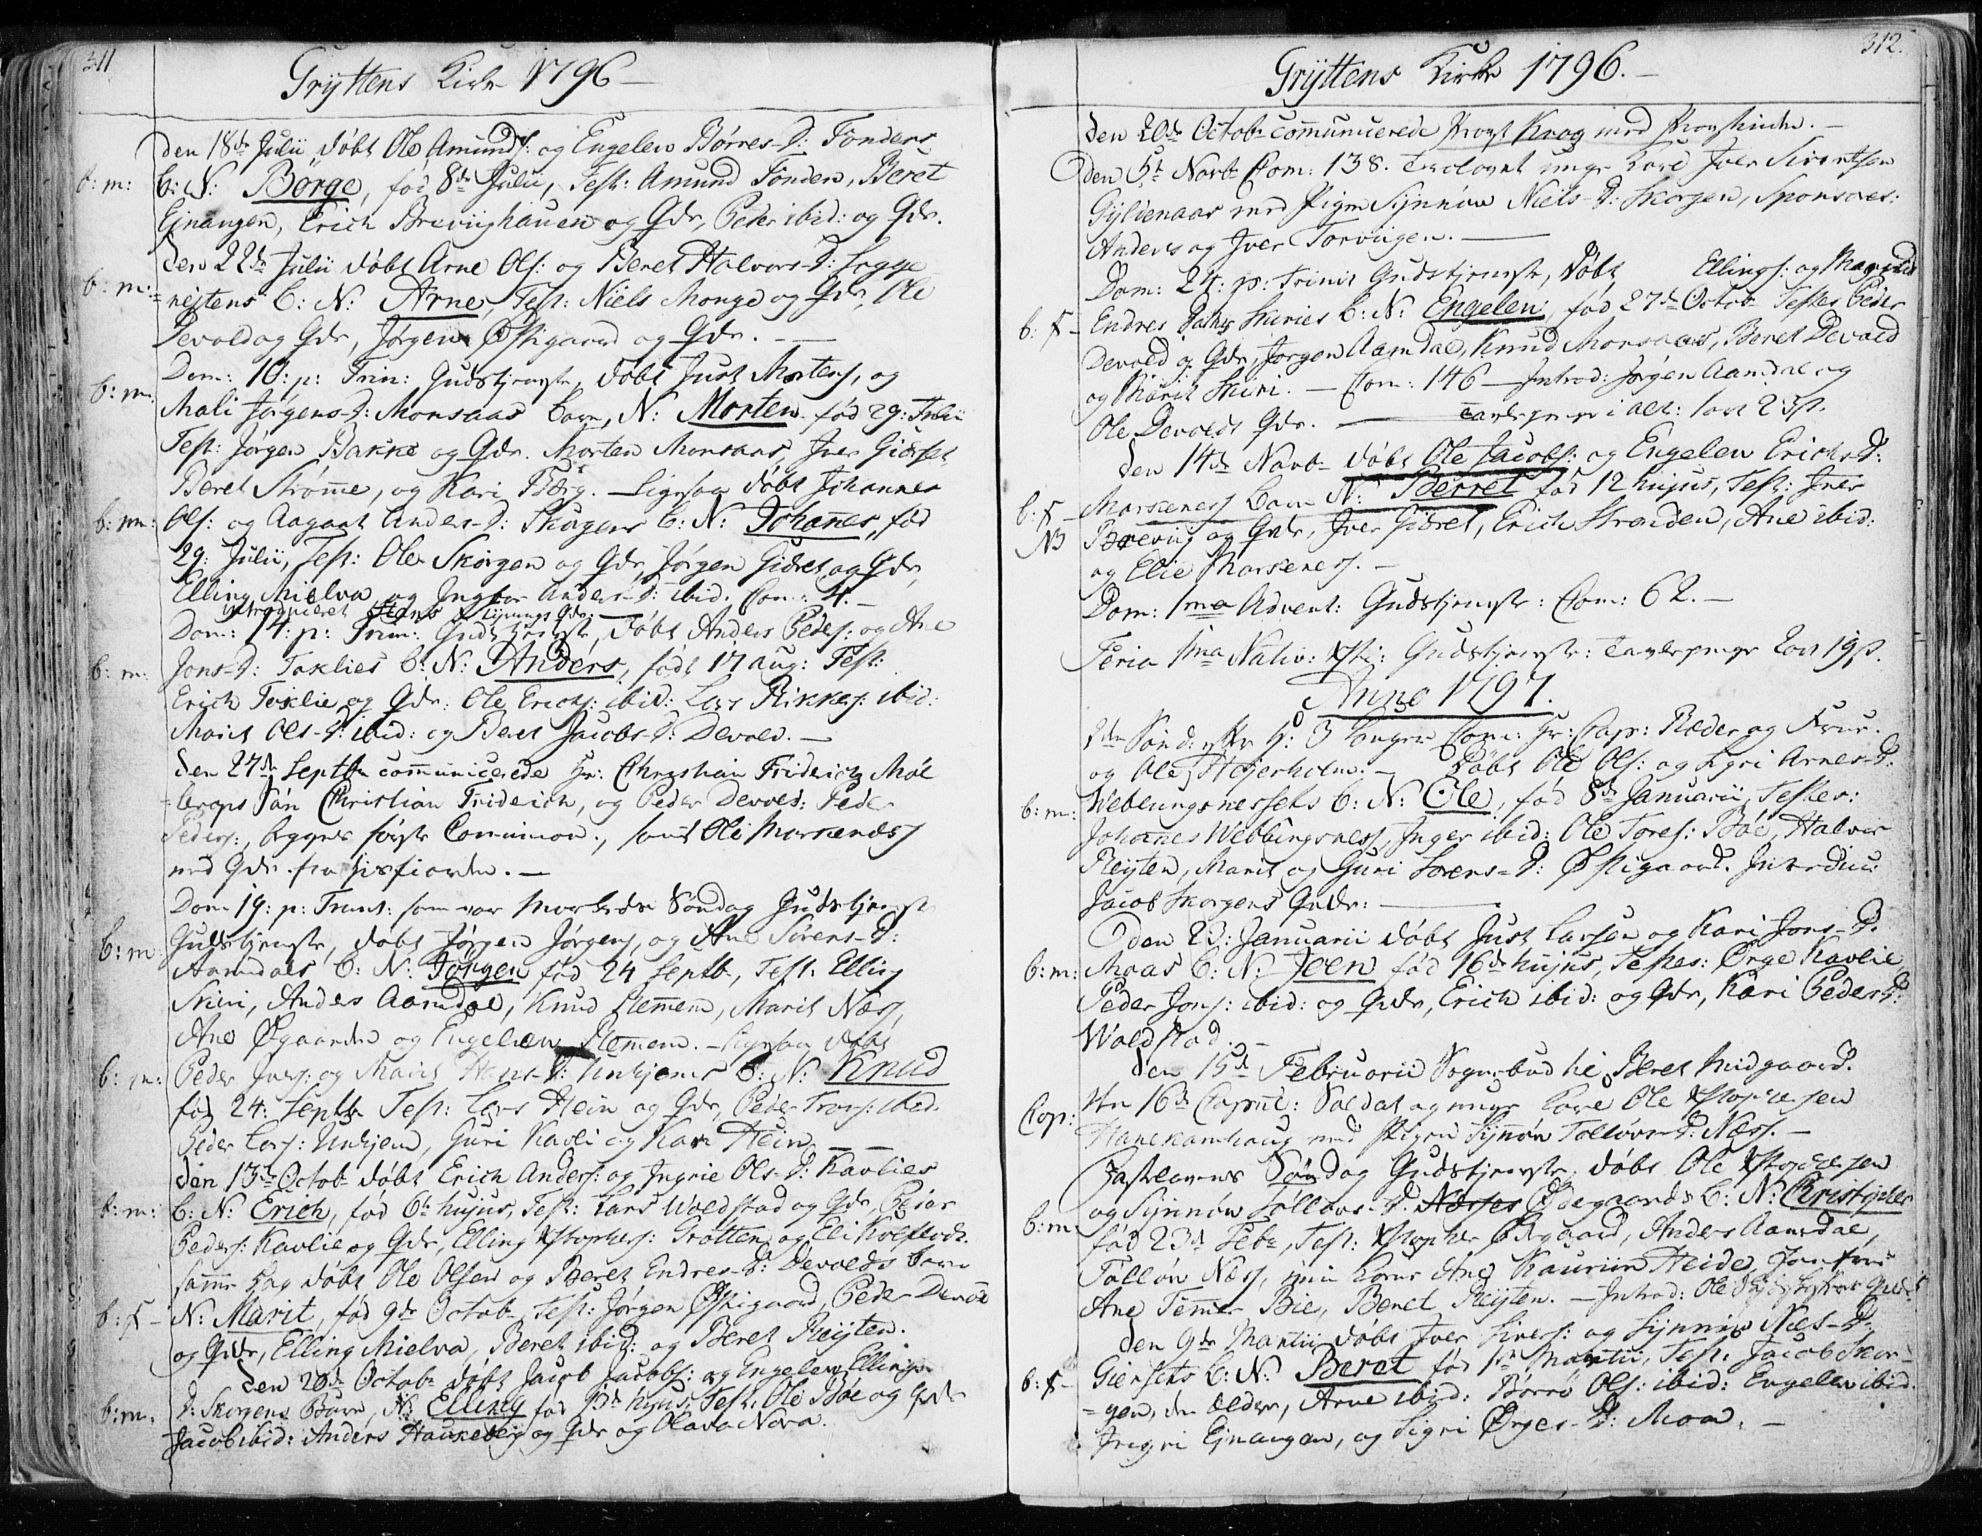 311
Gryttens Kirke 1796 –
den 18de Julii døbt Ole Amunds: og Engelen Børres-D: Fonders
b: m: b: N: Børge, fød 8de Julii, Test: Amund Fonden, Beret
Ejnangen, Erich Breviighauen og Qde, Peder ibid: og Qde.
den 22de Julii døbt Arne Ols: og Beret Halvors-D: Sogge
b: m: rejtens b: N: Arne, Test: Niels Monge og Qde, Ole
Devold og Qde, Jørgen Øftigaard og Qde. —
Dom: 10: p: Trin: Gudstjeneste, døbt Just Mortens, og
b: m: Mali Jørgens-D: Monsaas barn, N: Morten fød 29: Julii
Test: Jørgen Bakke og Qde. Morten Monsaas, Iver Giørset,
Beret Strømme, og Kari Berg. – Ligesaa døbt Johannes
b: m: Ols: og Aagaat Anders-D: Skogens b: N: Johannes, fød
29: Julii, Test: Ole Skorgen og Qde, Jørgen Gidret og Qde,
Elling Mielva og Ingbor Anders-D: ibid. Com: 4. –
introduceret
Dom: 14: p: Trin: Gudstjeneste, døbt Anders Peders: og Ane
b: m: Jons-D: Toklies b: N: Anders, født 17 aug: Test:
Erich Toklie og Qde: Ole Erichs: ibid: Lars Rikkes: ibid:
Marit Ols-D: ibid: og Beret Jacobs-D: Devold. —
den 27de Septbr communicerede Hr: Christian Friderich Møl
lerops Søn Christian Friderich, og Peder Devold: Peder
Peders:, begges første Communion., samt Ole Morstenøes
med Qde fra Jisfiorden. —
Dom 19: p: Trinit: som var Søndag Gudstjeneste
b: m: Gudstjeneste, døbt Jørgen Jørgens, og Ane Sørens-D:
Aamdals b: N: Jørgen fød 24 Septb, Test: Elling
Skiri, Anders Aamdal, Knud Stemem, Marit Næs,
Ane Øgaarden og Engelen Stemem. – Ligesaa døbt
b: m: Peder Ivers: og Marit Hans-D: Unhjems b: N: Knud
fød 24: Septbr Test: Lars Hein og Qde, Peder Ivers: ibid.
Peder Lars: Unhjem, Guri Kavli og Kari Hein. —
den 13de Octobr døbt Erich Anders: og Ingrie Ols-D: Kavlies
b: m: b: N: Erich, fød 6te hujus, Test: Lars Woldstad og Qde, Peder
Peders: Kavlie og Qde, Elling Xstophers: Grøtten og Eli Kolflodt.
samme Dag døbt Ole Olsen og Beret Endres-D: Devolds barn
b: F – N: Marit, fød 9de Octob: Test: Jørgen Øftigaard, Peder Devold
og Qde, Elling Mielva, Beret ibid: og Beret Reijten.
den 20de Octob: døbt Jacob Jacobs: og Engelen Ellings
b: m: D: Skorgens Barn, N: Elling fød hujus, Test: Ole Bøe og Qde
Jacob ibid: Anders Haukebøig og Qde og Olava Nora.
312.
Gryttens Kirke 1796. –
den 20de Octob: communicerede Provst Krog med Provstinden. –
den 5t Novb: Com: 138. Trolovet unge Karl Iver Sivertsen
Gyldenaas med Pigen Synnøv Niels-D: Skorgen, Sponsores:
Anders og Iver Torviigen. —
Dom: 24: p: Trinit Gudstjeneste, døbt Ellings: og Magnild
b: F – Endres Datter Skiries b: N: Engelen, fød 27de Octob: Testes Peder
Devold og Qde, Jørgen Aamdal, Knud Monsaas, Beret Devold
og Marit Skiri. – Com: 146 – Introd: Jørgen Aamdal og
Ole Devolds Qde. — Tavlepenge i alt: 1 ort 23 s.
den 14de Novb: døbt Ole Jacobs: og Engelen Erichs-D:
b: F – Morstenes barn N: Berret fød 12 hujus, Test: Iver
NB Breviig og Qde, Iver Gidret, Erich Stranden, Ane ibid:
og Elie Morstenes. –
Dom: 1ma Advent: Gudstjeneste: Com: 62. –
Feria 1ma Nativ: Xsti: Gudstjeneste: Tavlepenge 1 ort 19 s.
Anno 1797.
2de Sønd: efter H: 3 Konger Com: Hr: Cap: Ræder og Frue.
og Ole Højerholm. – døbt Ole Ols: og Sigri Arnes-D:
b: m: Weblungsnessets b: N: Ole, fød 8de Januarii Testes:
Johannes Webblungsness, Inger ibid: Ole Tores: Bøe, Halvor
Reijten, Marit og Guri Sørens-D: Øftigaard. Introduc:
Jacob Skorgens Qde: —
den 23: Januarii døbt Just Larsen og Kari Jons-D.
b: m: Moas b: N: Joen fød 16de hujus, Testes: Ørge Kavlie
Peder Jons: ibid: og Qde, Erich ibid: og Qde, Kari Peders D:
Woldstad. –
den 15de Februarii Sognebud til Beret Midgaard.
Cop: den 16de Copul: Soldat og unge Karl Ole Xstophersen
Hanekamhaug med Pigen Synnøv Tolløvs-D: Næss. –
Fastelavns Søndag Gudstjeneste, døbt Ole Xstophersen
og Synnøv Tolløvs-D. Næsses Øvegaards b: N: Christopher
b: m: fød 23de Feb:, Test: Xstopher Øvgaard, Anders Aamdal,
Tolløv Næss, min Kone Ane Kauriin Heide, Jomfrue
Ane Temmer Bie, Beret Reijten. – Introd: Ole
den 9de Martii døbt Iver Sivers: og Synnøv Næs-D:
b: F – Giersets b: N: Beret fød 1te Martii, Test: Jacob Skor-
gen, den ælder, Arne ibid: Børre Ols: ibid: Engelen ibid.
Ingri Ejnangen, og Sigri Ørges-D: Moen. –